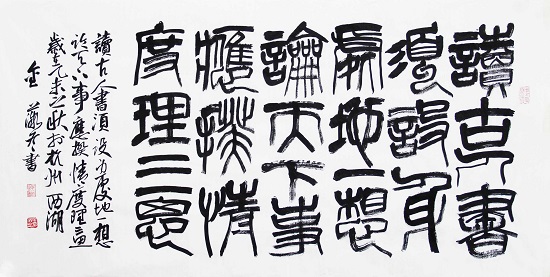 讀古人書
須設身
處地一想
論天下事
應揆情
度理三思
讀古人書須設身處地一想
論天下事應揆情度理三思
歲在未之秋於杭州西湖
金書